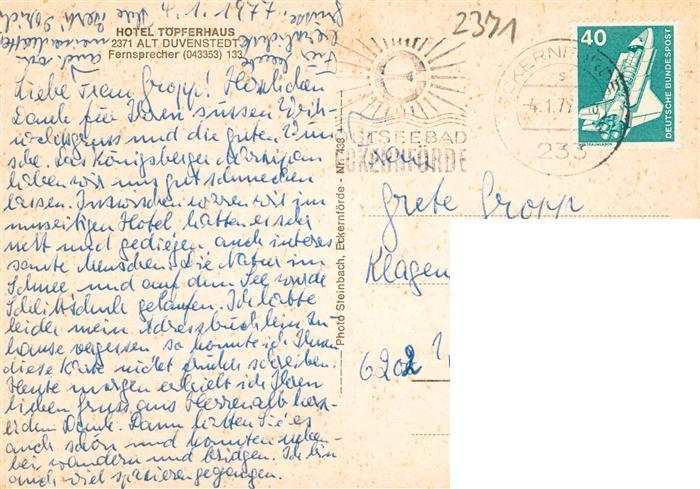 HOTEL TÖPFERHAUS
2371 ALT DUVENSTEDT
Fernsprecher (043353) 133
4. 1. 1977.
Liebe Frau Gropp! Herzlichen
Dank für Ihren süssen Weih-
nachtsgruss und die guten Wün-
sche. Das Königsberger Marzipan
haben wir uns gut schmecken
lassen. Inzwischen waren wir im
umseitigen Hotel, hatten es sehr
nett und gediegen, auch interes
sante Menschen. Die Natur im
Schnee und auf dem See wurde
Schlittschuh gelaufen. Ich hatte
leider mein Adressbüchlein zu-
hause vergessen so konnte ich Ihnen
diese Karte nicht schreiben.
Heute morgen erhielt ich Ihren
lieben Gruss aus Herrenalb herz-
lichen Dank. Dann hatten Sie es
auch schön und konnten neben-
bei wandern und bridgen. Ich bin
auch viel spazierengegangen.
Photo Steinbach, Eckernförde - Nr. 438
2371
OSTSEEBAD
ECKERNFÖRDE
ECKERNFÖRDE
4.1.77
233
40
DEUTSCHE BUNDESPOST
WELTRAUMLABOR
Frau
Grete Gropp
Klagen
6202